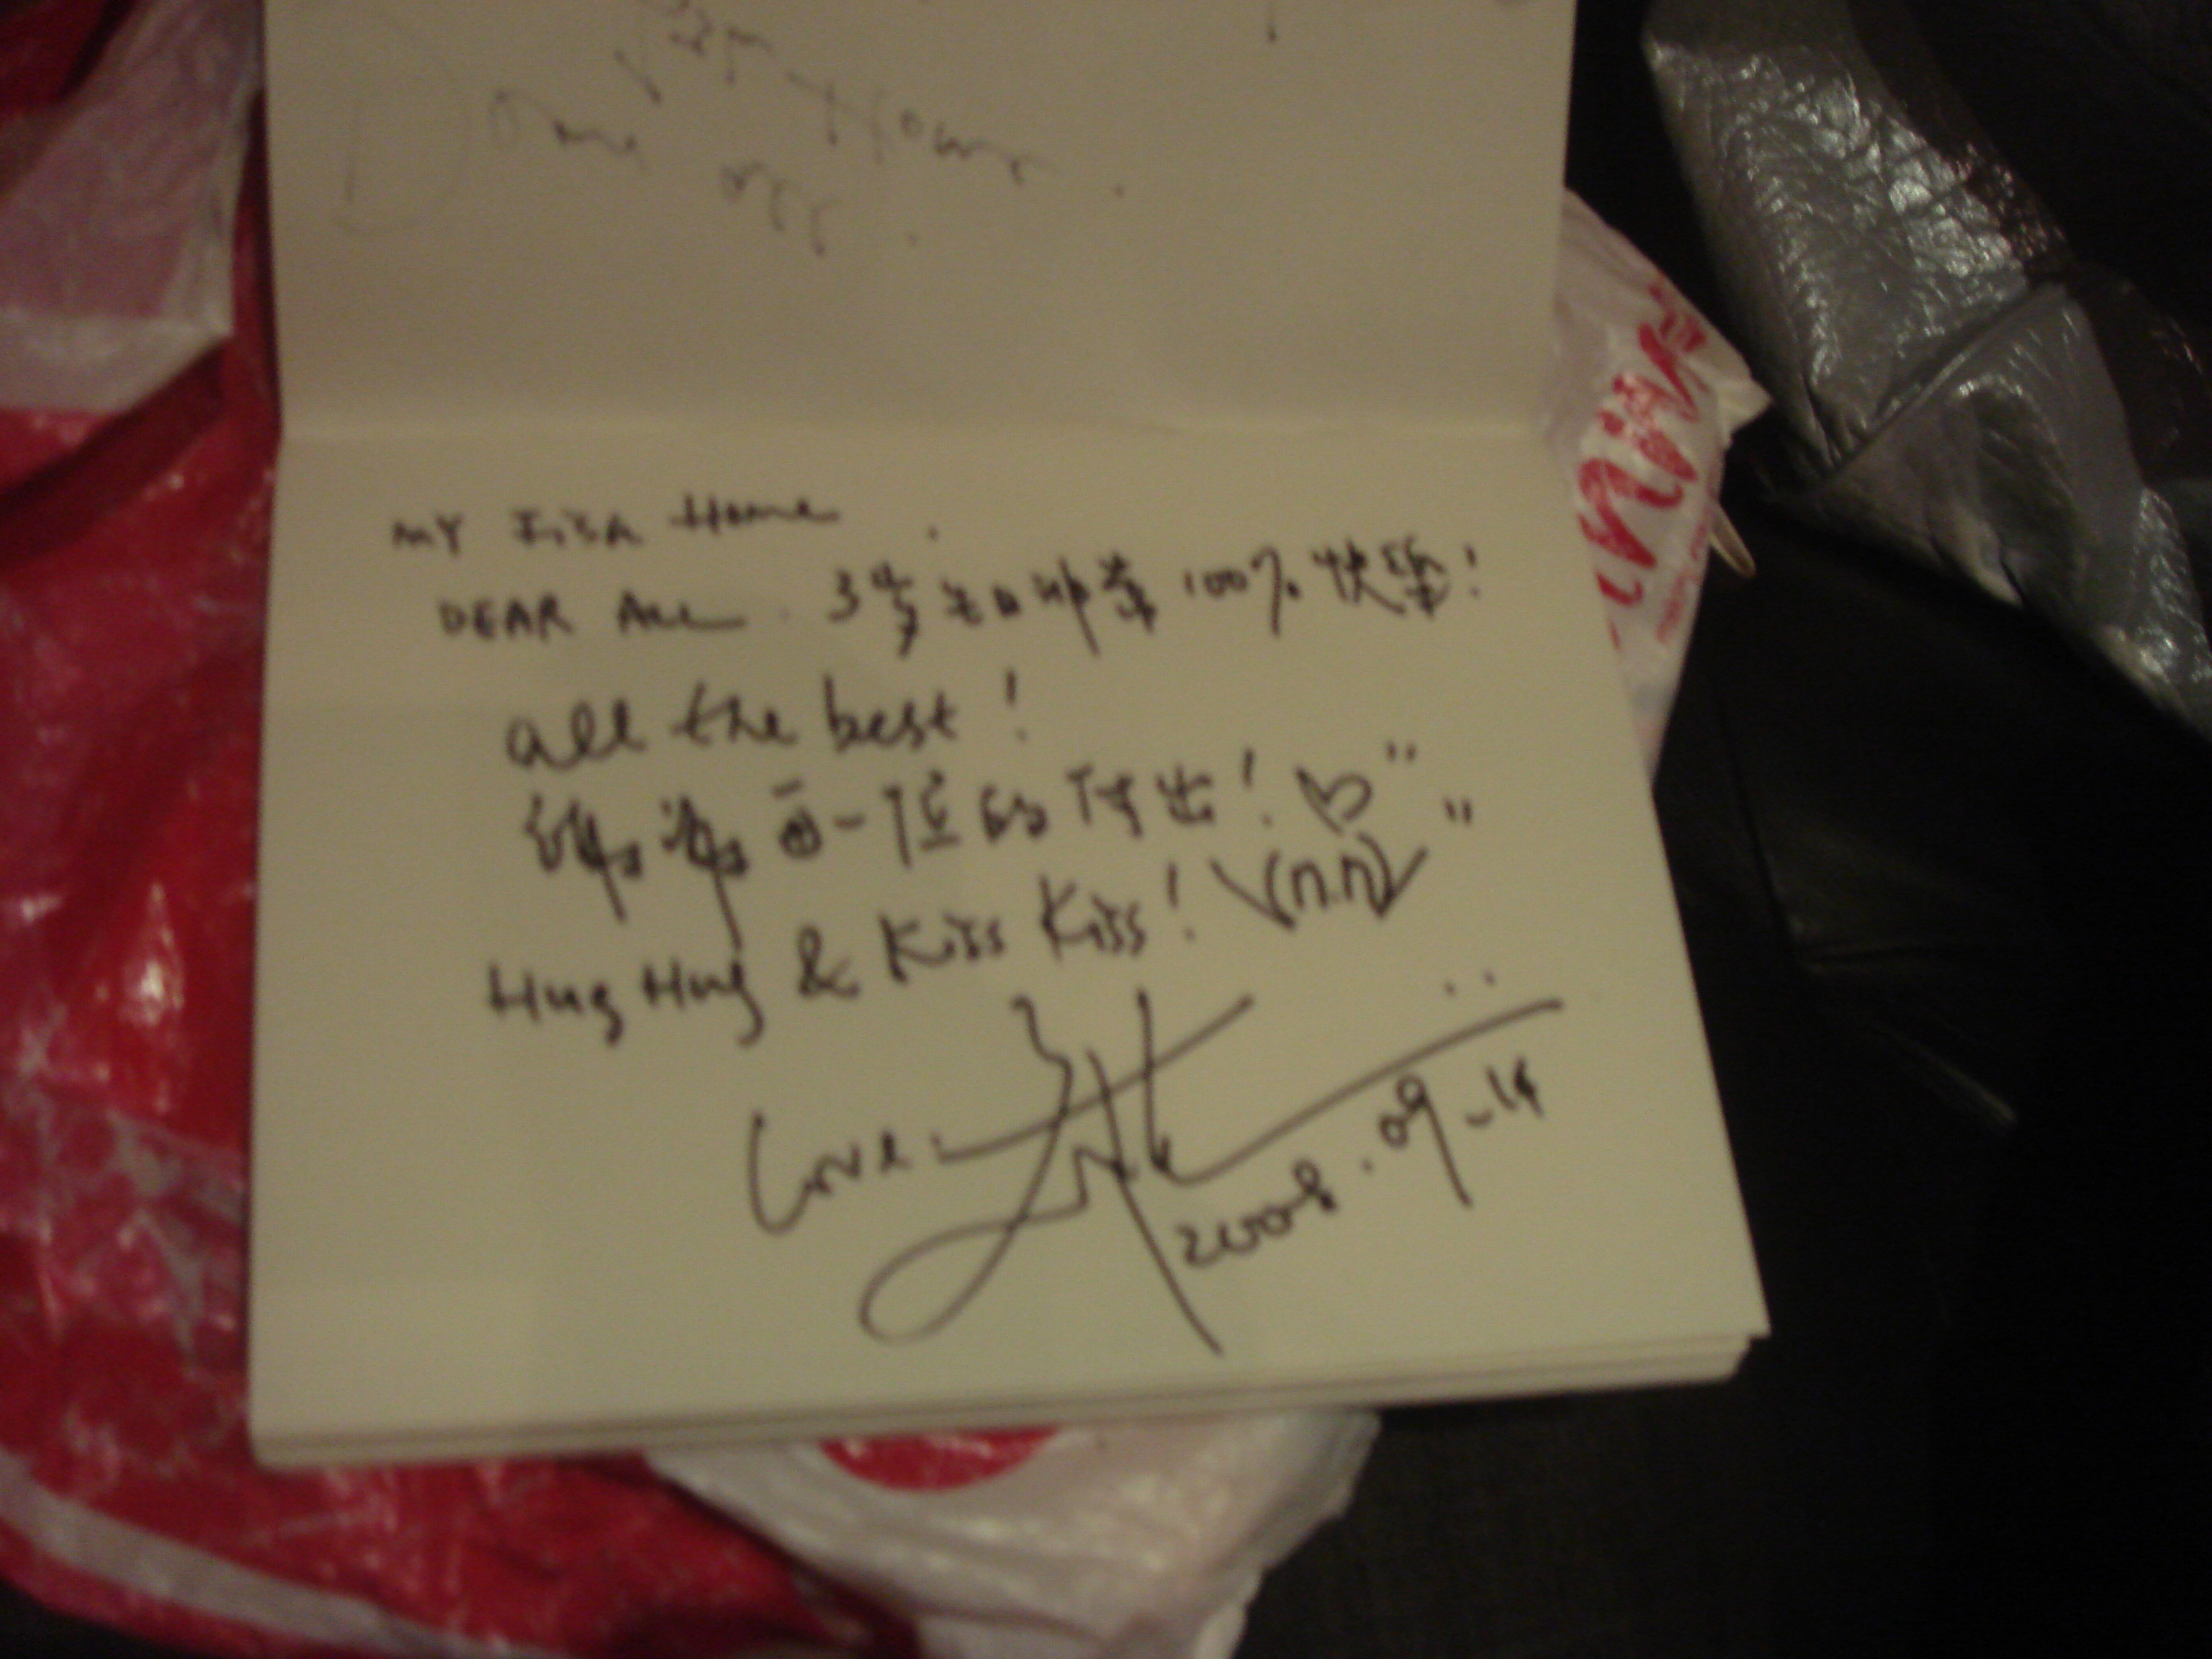 MY Fish Home
DEAR ALL. 3岁生日非常100%快乐!
all the best!
谢谢每一位的付出! ♡"
Hug Hug & Kiss Kiss! \(∩.∩)/ "
Love
2008.09-14